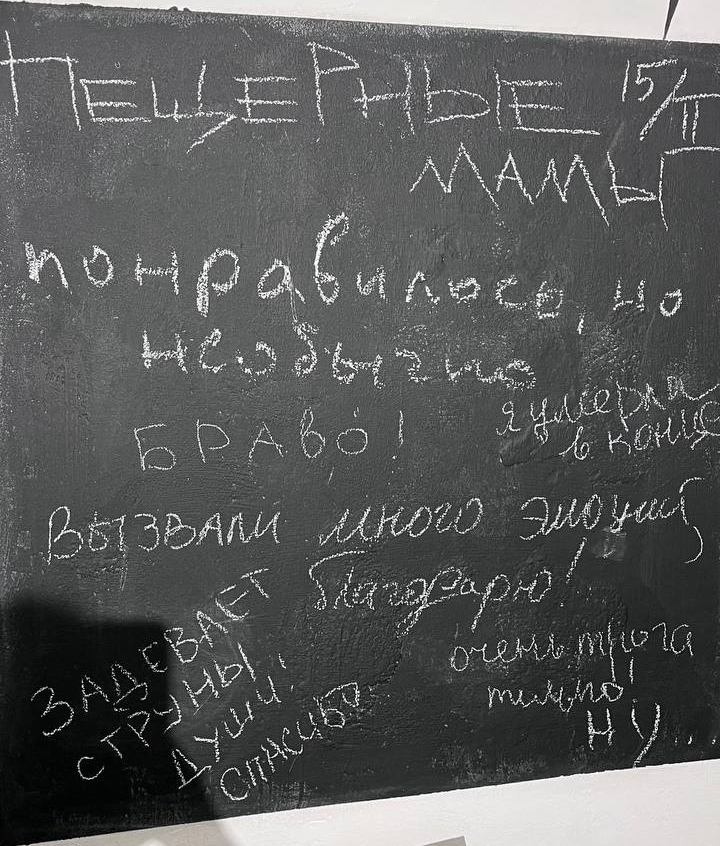 ПЕЩЕРНЫЕ 15/II
МАМЫ
понравилось, но
необычно
БРАВО!
я умерла
в конце
ВЫЗВАЛИ много эмоций,
благодарю!
ЗАДЕВАЕТ
СТРУНЫ
ДУШИ!
СПАСИБО
очень трога
тельно!
НУ...